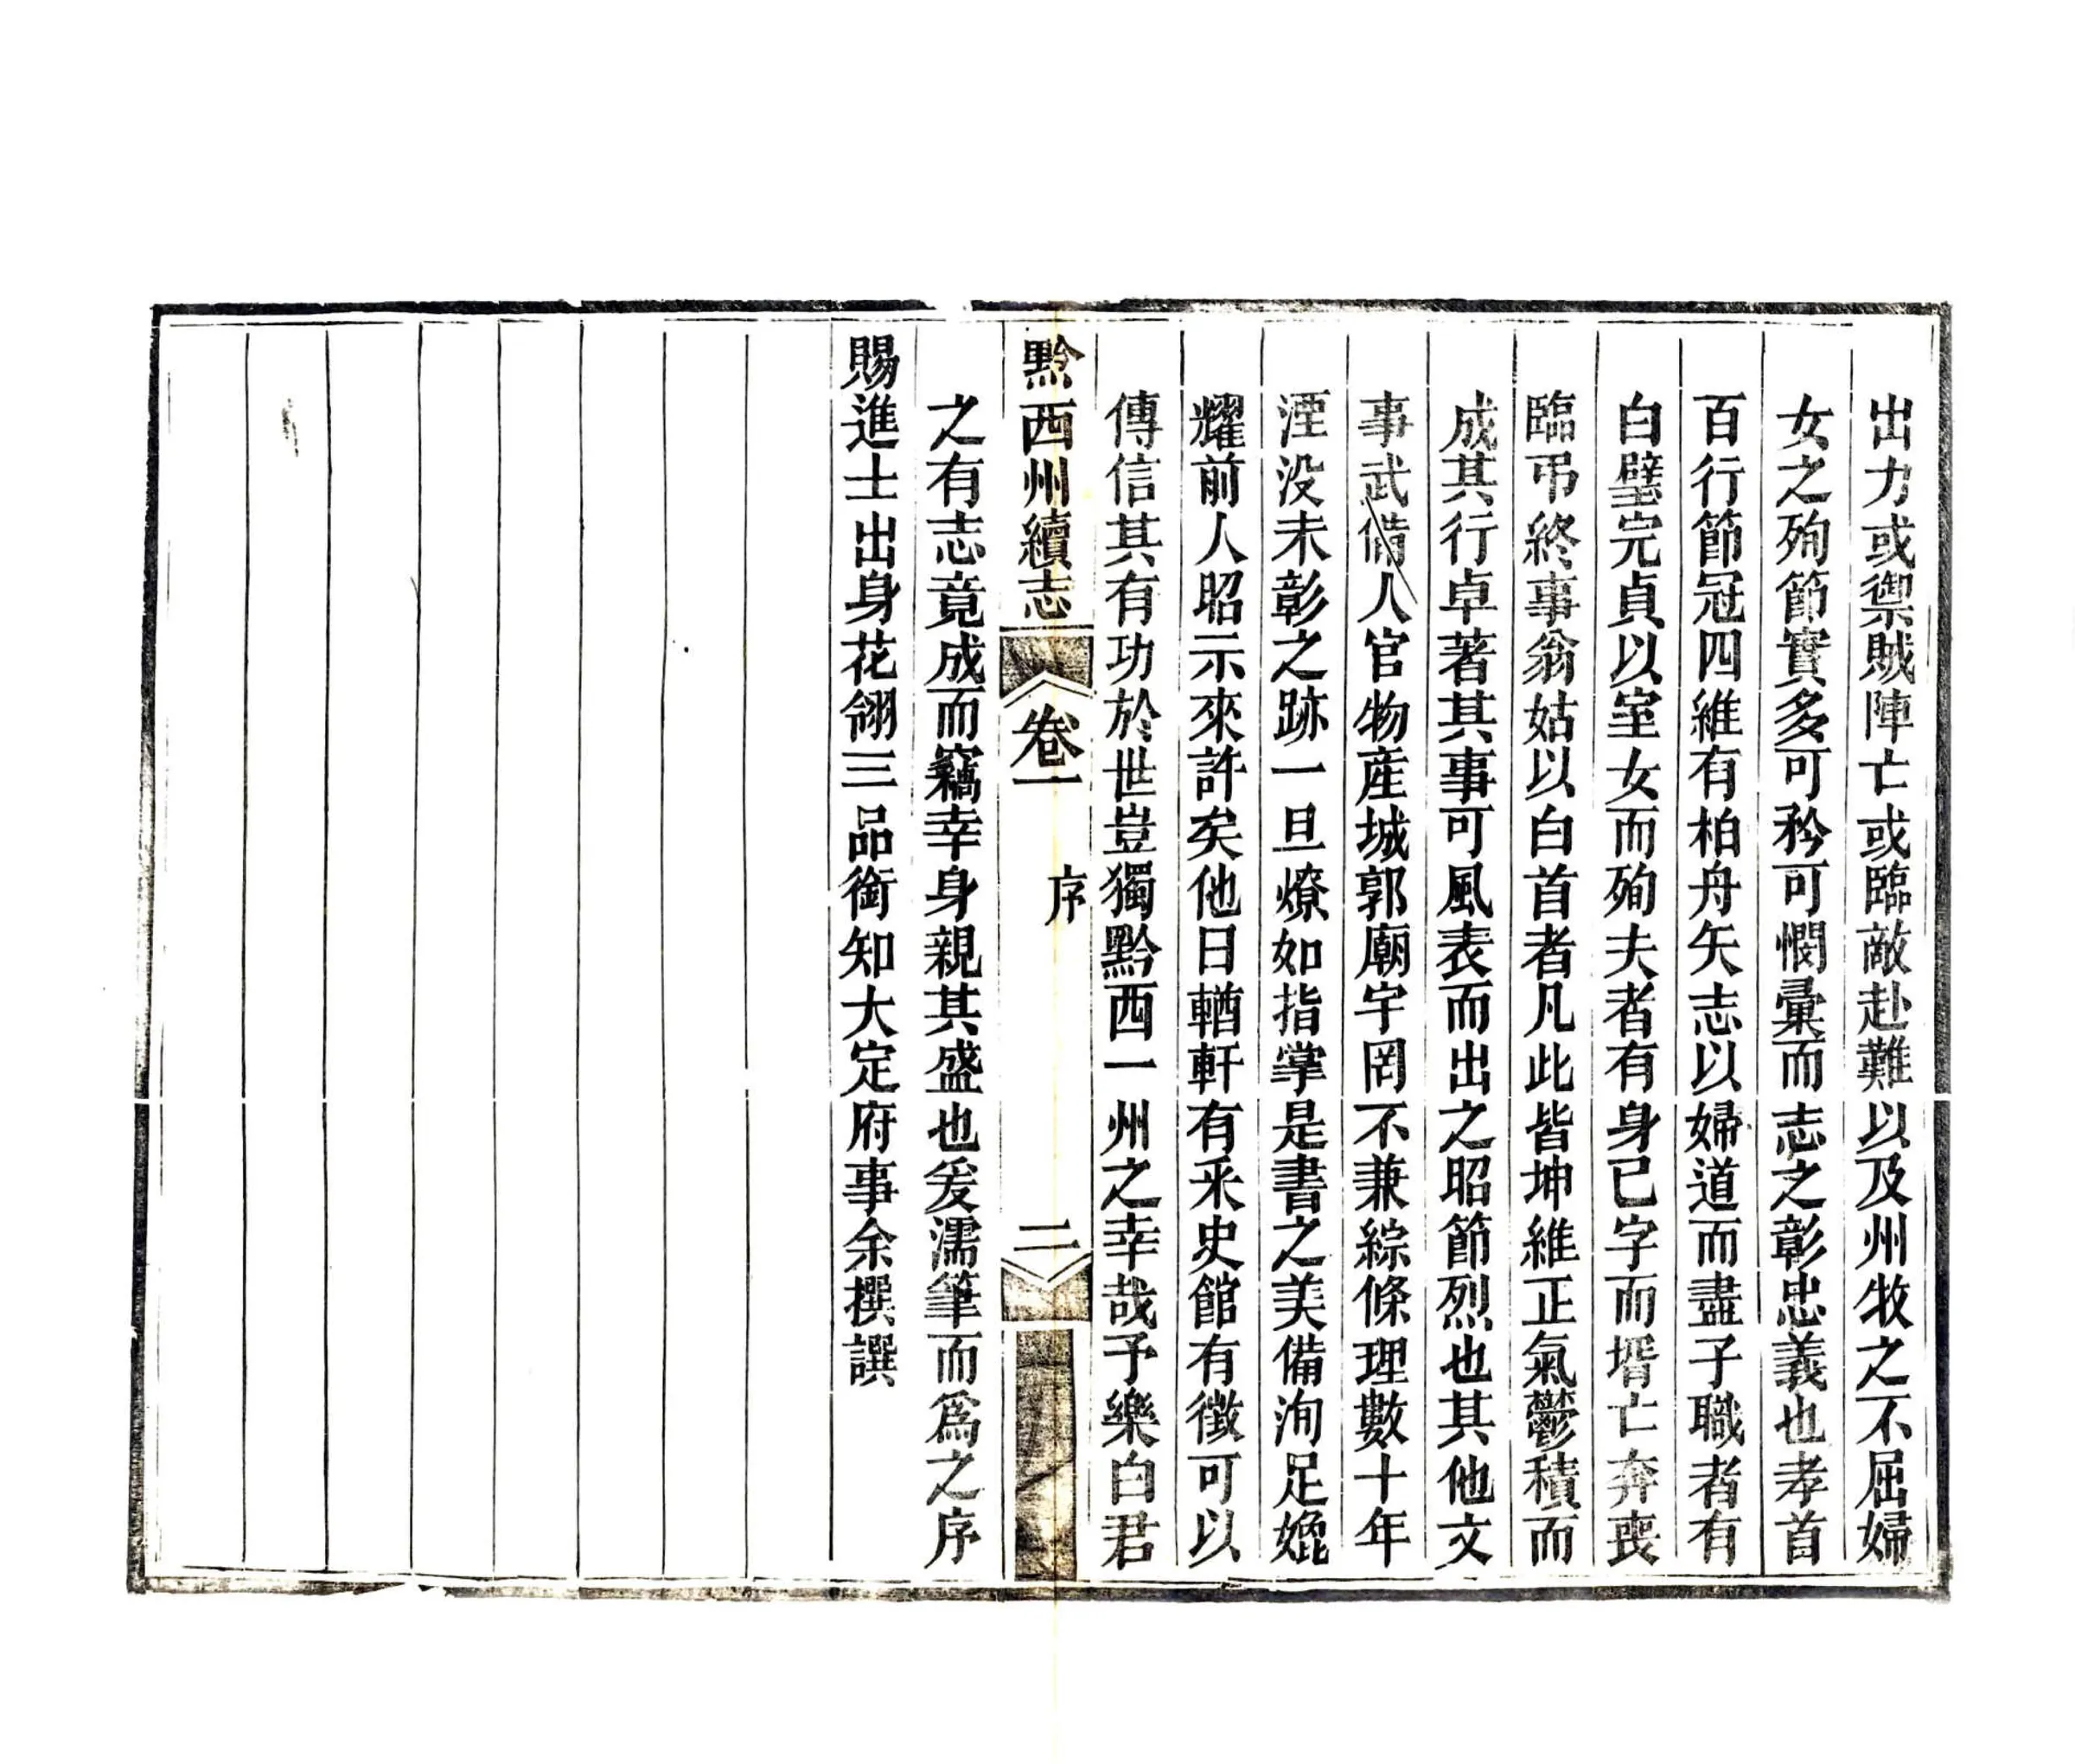 出力或禦賊陣亡或臨敵赴難以及州牧之不屈婦
女之殉節實多可矜可憫彙而志之彰忠義也孝首
百行節冠四維有柏舟矢志以婦道而盡子職者有
白璧完貞以室女而殉夫者有身已字而壻亡奔喪
臨弔終事翁姑以白首者凡此皆坤維正氣鬱積而
成其行卓著其事可風表而出之昭節烈也其他文
事武備人官物産城郭廟宇罔不兼綜條理數十年
湮没未彰之跡一旦燎如指掌是書之美備洵足媲
耀前人昭示來許矣他日輶軒有釆史館有徴可以
傳信其有功於世豈獨黔西一州之幸哉予樂白君
黔西州續志 卷一 序 二
之有志竟成而竊幸身親其盛也爰濡筆而爲之序
賜進士出身花翎三品銜知大定府事余撰譔